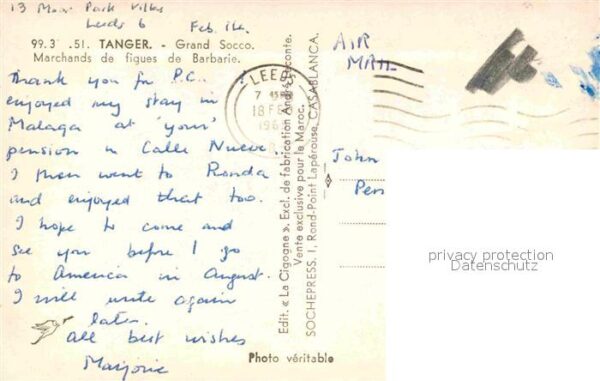 13 Moor Park Villas
Leeds 6 Feb. 14.
99.3 .51. TANGER. - Grand Socco.
Marchands de figues de Barbarie.
Thank you for P.C.
enjoyed my stay in
Malaga at 'your'
pension in Calle Nueva.
I then went to Ronda
and enjoyed that too.
I hope to come and
see you before I go
to America in August.
I will write again
later.
all best wishes
Marjorie
Edit. « La Cigogne ». Excl. de fabrication André Leconte.
Vente exclusive pour le Maroc.
SOCHEPRESS, 1, Rond-Point Lapérouse, CASABLANCA.
Photo véritable
AIR
MAIL
LEEDS
18 FEB
196
John
Pen
privacy protection
Datenschutz